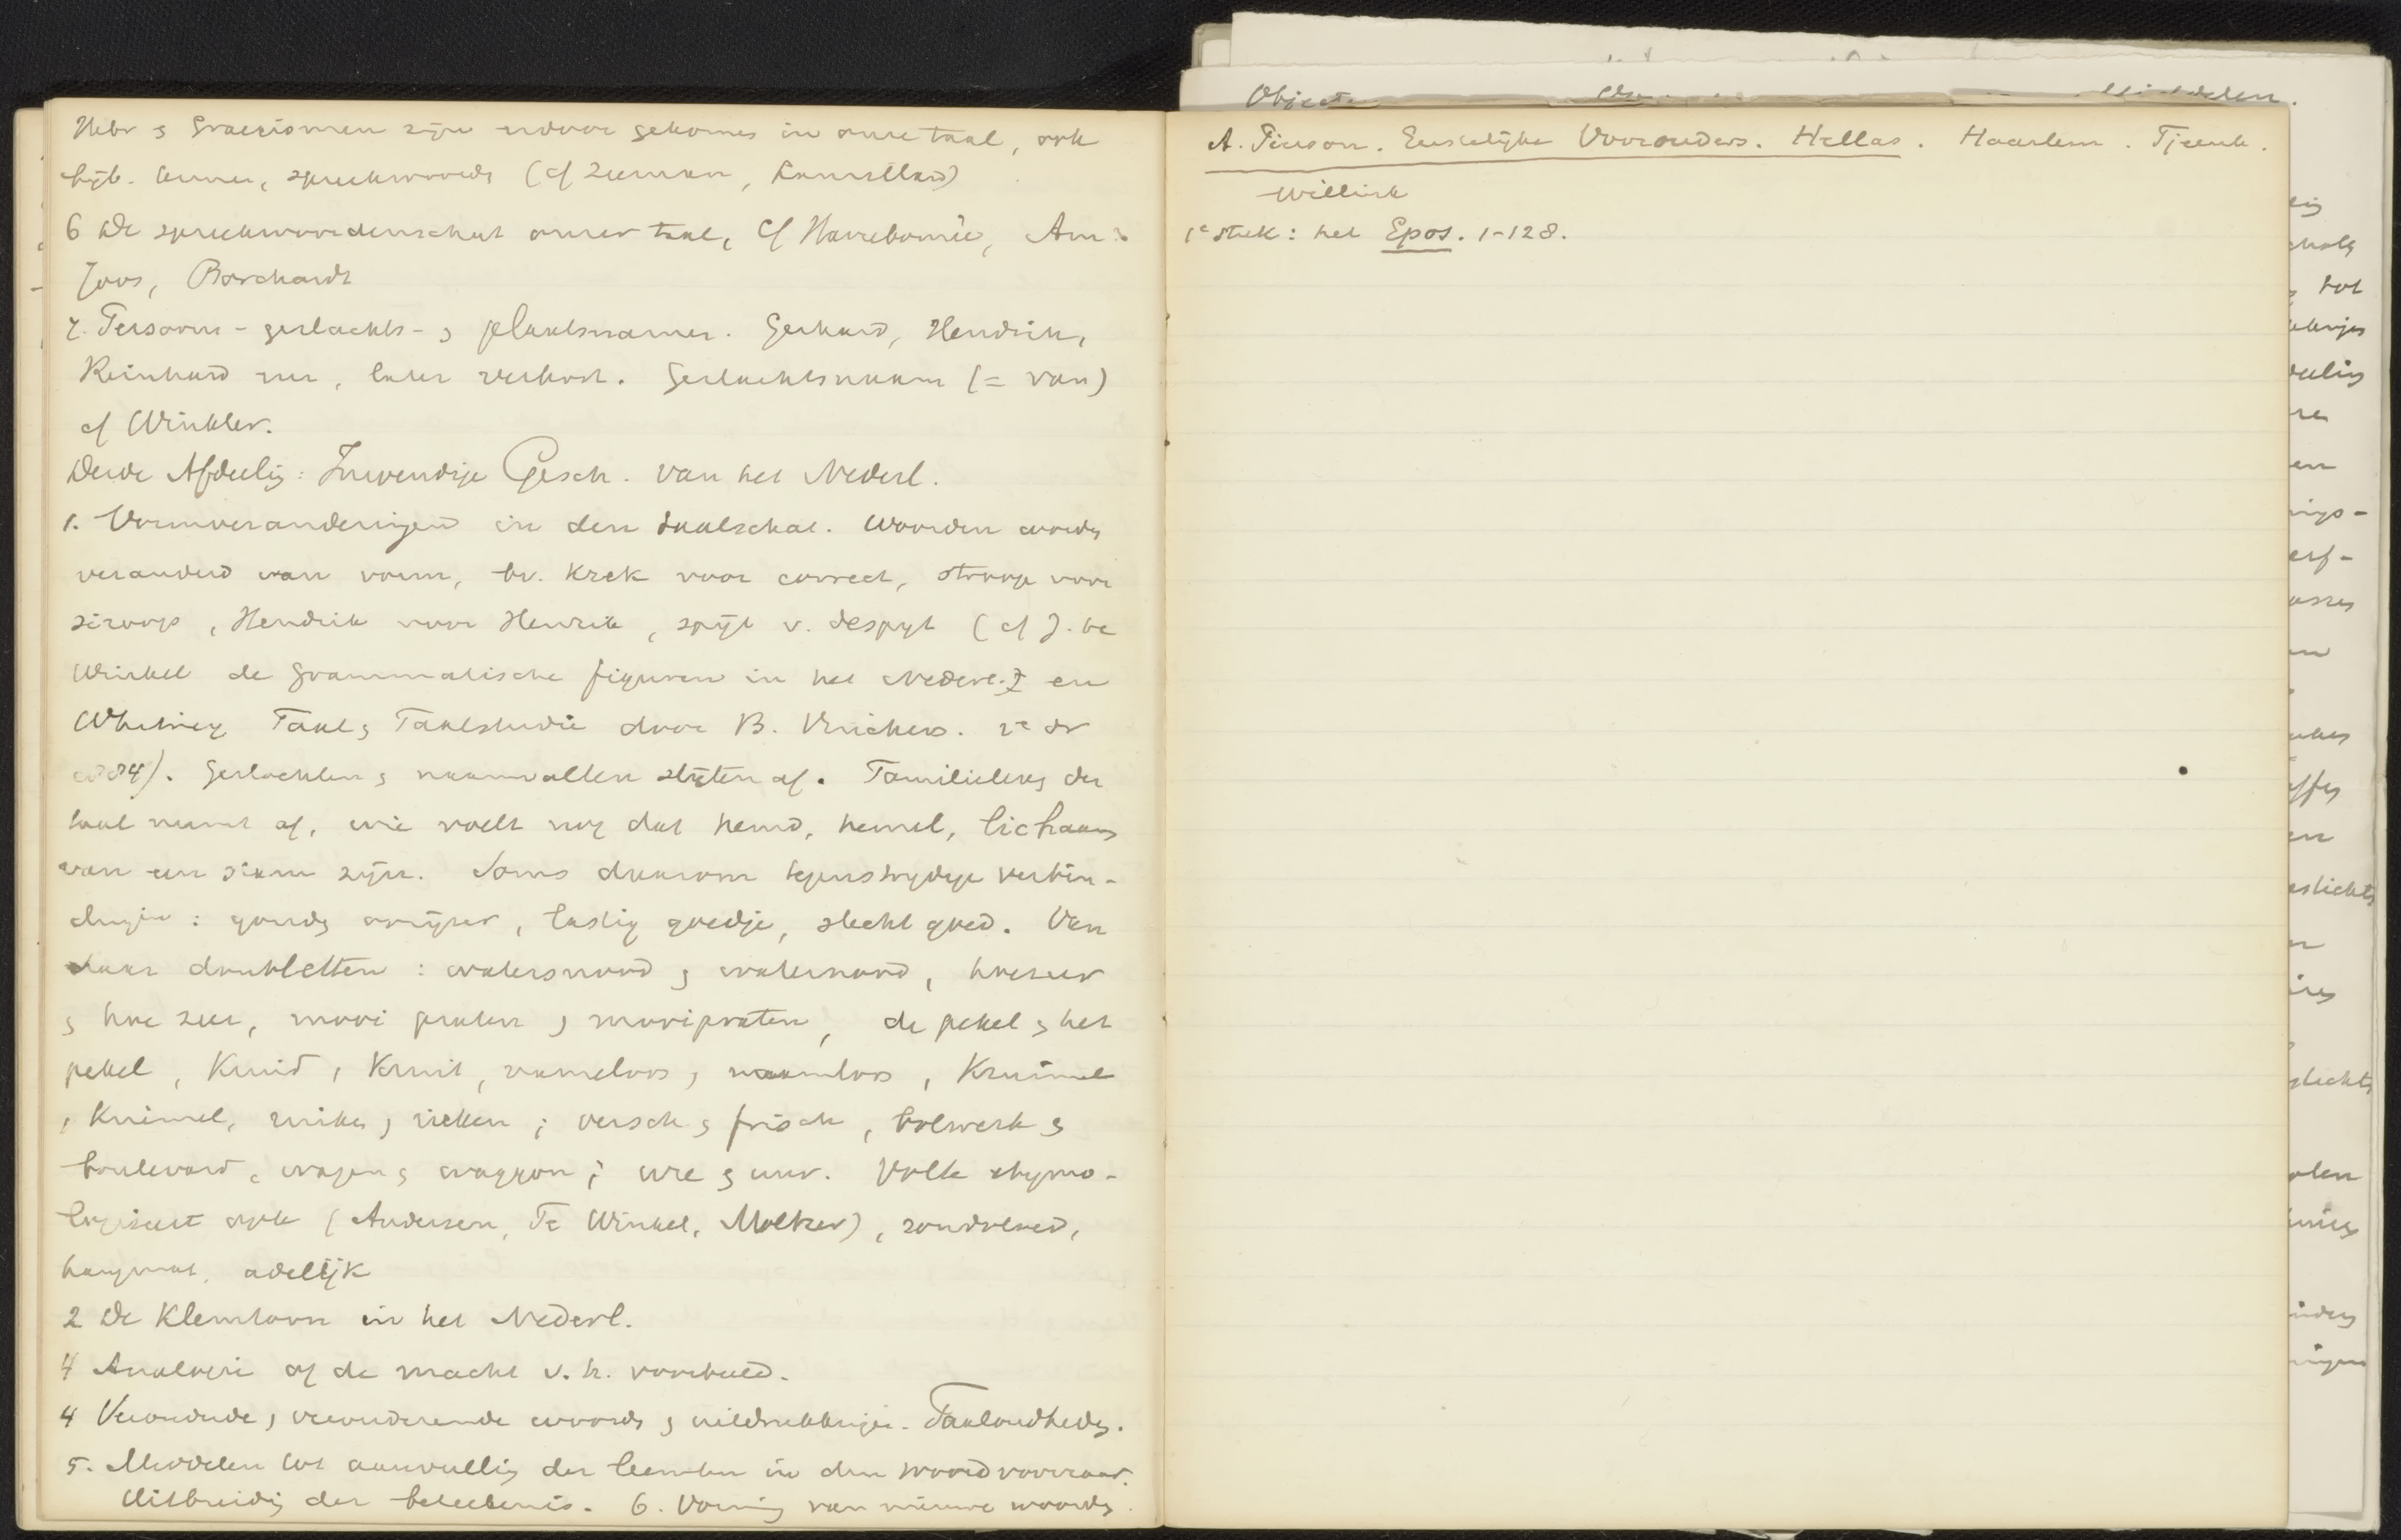 Hebr en Graecismen zijn erdoor gekomen in onze taal, ook
bijb. termen, spreekwoorden (cf Zeeman, Laurillard)
6 De spreekwoordenschat onzer taal, cf Harrebomée, Am.
Joos, Borchardt
7. Persoons- geslachts- en plaatsnamen. Gerhard, Hendrik,
Reinhard enz, later verkort. Geslachtsnaam (= van)
cf Winkler.
Derde Afdeeling: Inwendige Gesch. van het Nederl.
1. Vormveranderingen in den taalschat. Woorden worden
veranderd van vorm, bv. krek voor correct, stroop voor
siroop, Hendrik voor Henrik, spijt v. despijt (cf J. te
Winkel de grammatische figuren in het Nederl. en
Whitney Taal en Taalstudie door B. Vinckers. 2e dr
1884). Geslachten en naamvallen slijten af. Familieleven der
taal neemt af, wie voelt nog dat hemd, hemel, lichaam
van een stam zijn. Soms daarom tegenstrijdige verbin-
dingen: gouden oorijzer, lastig goedje, slecht goed. Van
daar doubletten: watersnood en waternood, hoezeer
en hoe zeer, mooi praten en mooipraten, de pekel en het
pekel, Kruid, Kruit, nameloos, naamloos, Kruimel
, Kriemel, ruiken, rieken; versch en frisch, bolwerk en
boulevard, wagen en waggon; ure en uur. Volk etymo-
logiseert ook (Andresen, Te Winkel, Moltzer), zondvloed,
hangmat, adellijk
2 De Klemtoon in het Nederl.
4 Analogie of de macht v. h. voorbeeld.
4 Verouderde, verouderende woorden en uitdrukkingen. Taaloudheden.
5. Middelen tot aanvulling der leemten in den woordvoorraad.
Uitbreiding der beteekenis. 6. Vorming van nieuwe woorden.
Objecten
Middelen.
A. Pierson. Geestelijke Voorouders. Hellas. Haarlem. Tjeenk.
Willink
1e stuk: het Epos. 1-128.